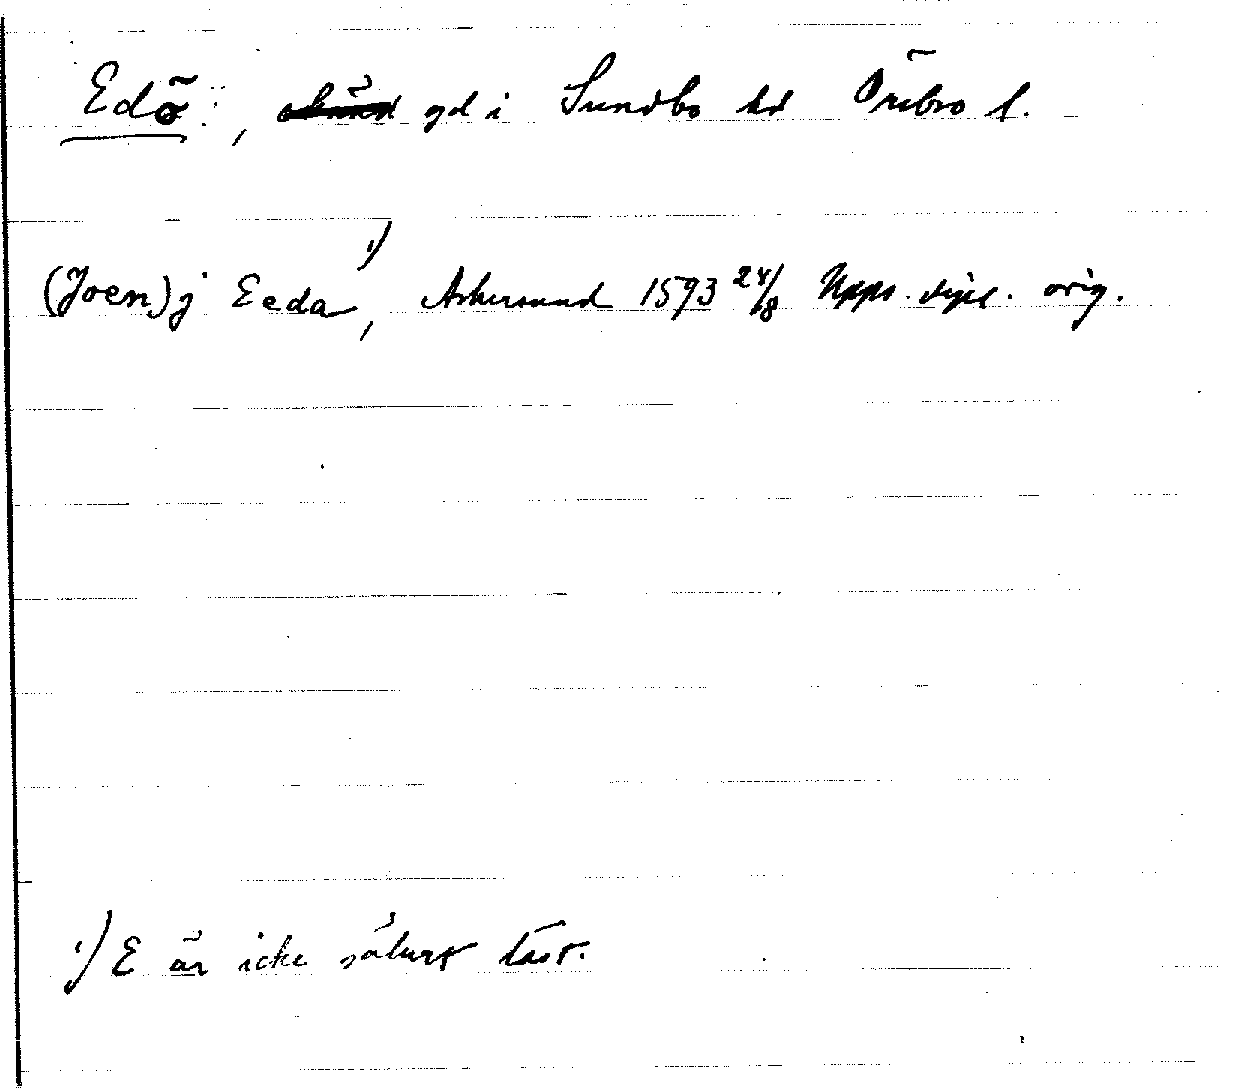 Edö, gd i Sundbo hd Örebro l.
(Joen) j Eeda¹⁾, Askersund 1593 24/8 Upps. dipl. orig.
¹⁾ E är icke säkert läst.